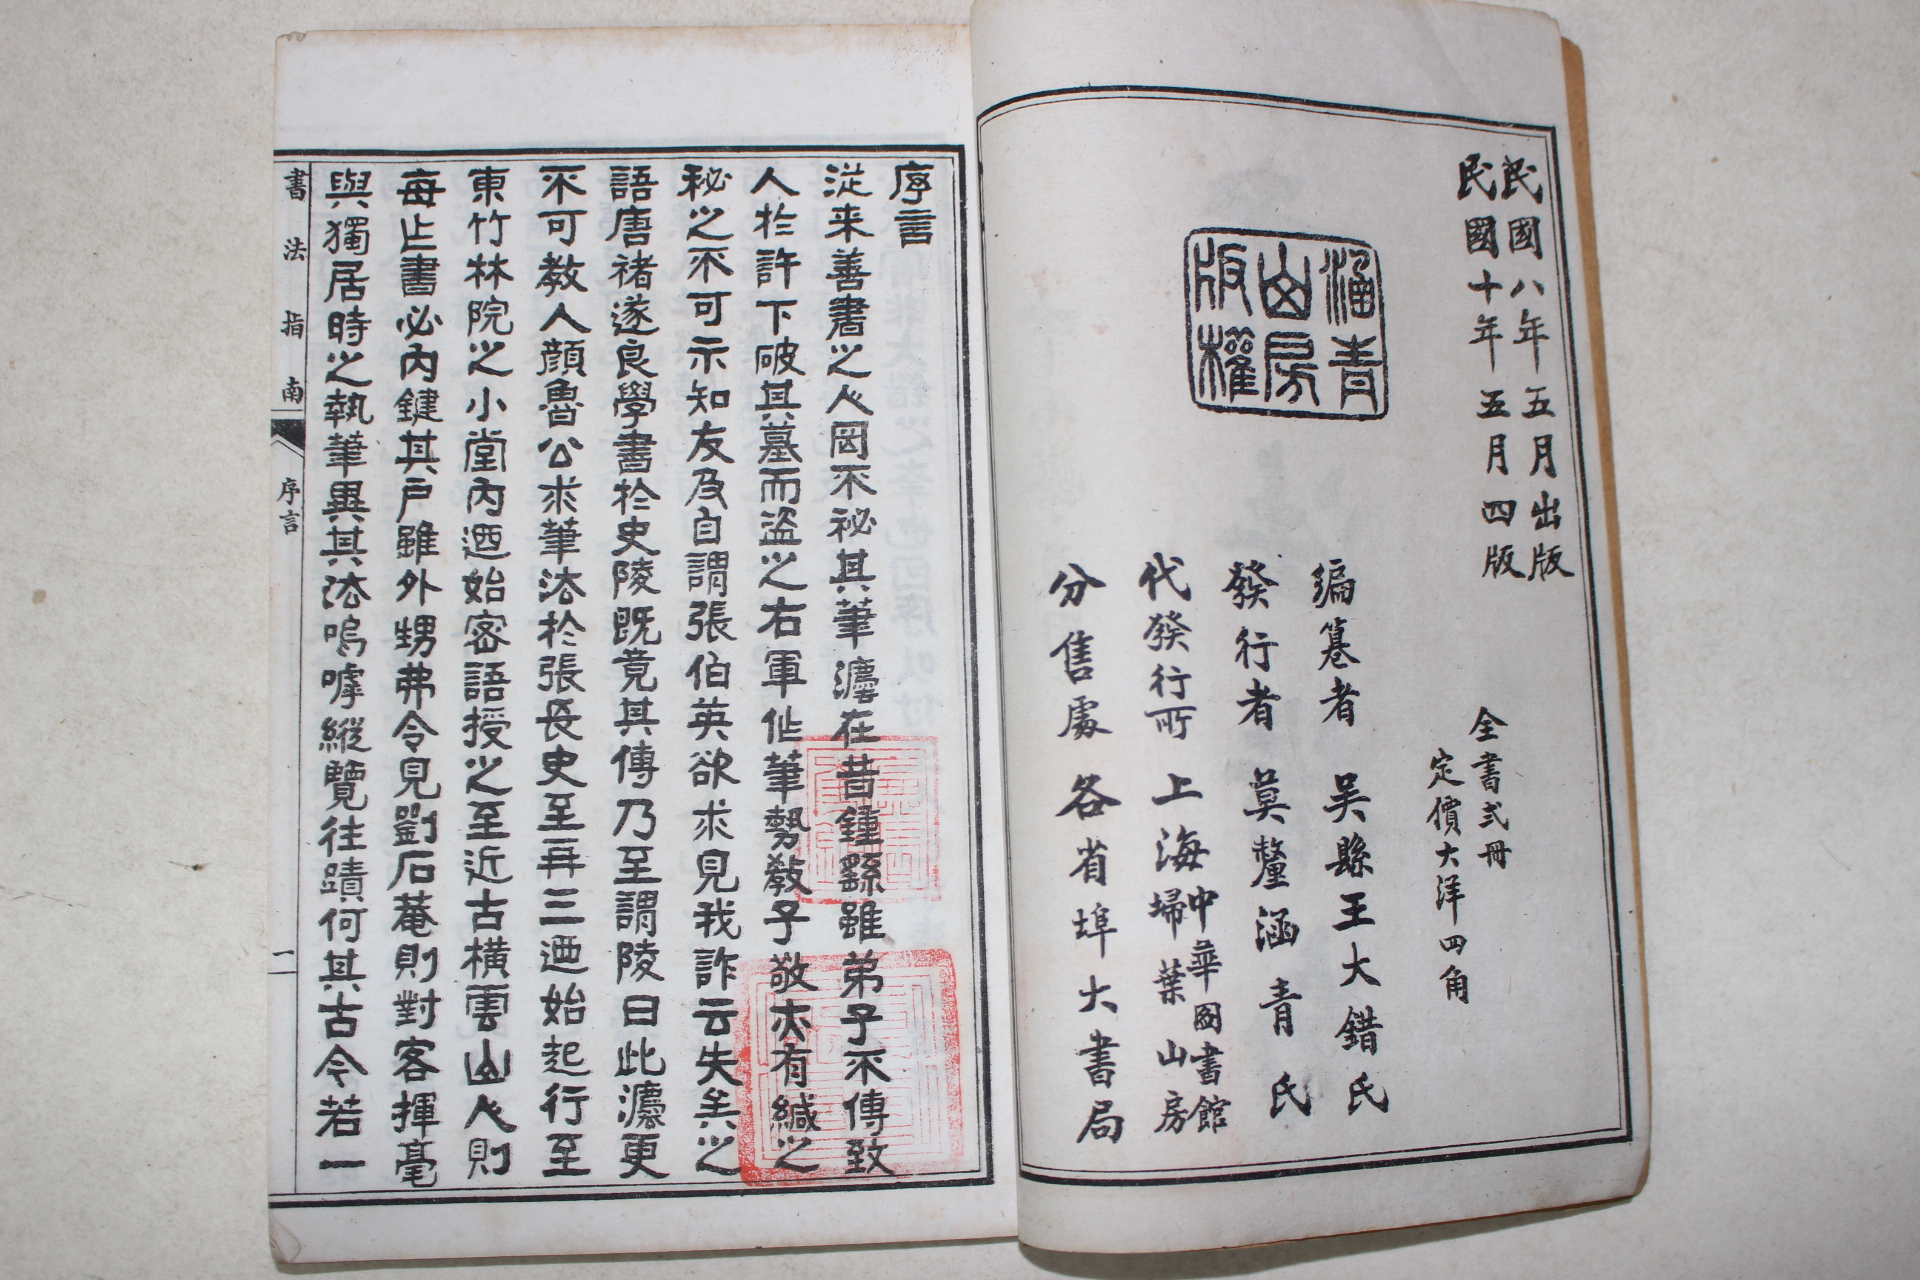 民國八年五月出版
民國十年五月四版
全書弍冊
定價大洋四角
涵青
山房
版權
編纂者 吴縣王大錯氏
發行者 莫釐涵青氏
代發行所 上海中華國書館
掃葉山房
分售處 各省埠大書局
序言
從来善書之人罔不祕其筆灋在昔鍾繇雖弟子不傳致
人於許下破其墓而盜之右軍作筆勢教子敬亦有緘之
秘之不可示知友及自謂張伯英欲求見我詐云失矣之
語唐禇遂良學書於史陵既竟其傳乃至謂陵曰此灋更
不可教人顔魯公求筆法於張長史至再三迺始起行至
東竹林院之小堂内迺始密語授之至近古横雲山人則
每止書必内鍵其戶雖外甥弗令見劉石菴則對客揮毫
與獨居時之執筆異其法嗚嘑縱覽往蹟何其古今若一
書法指南
序言
一